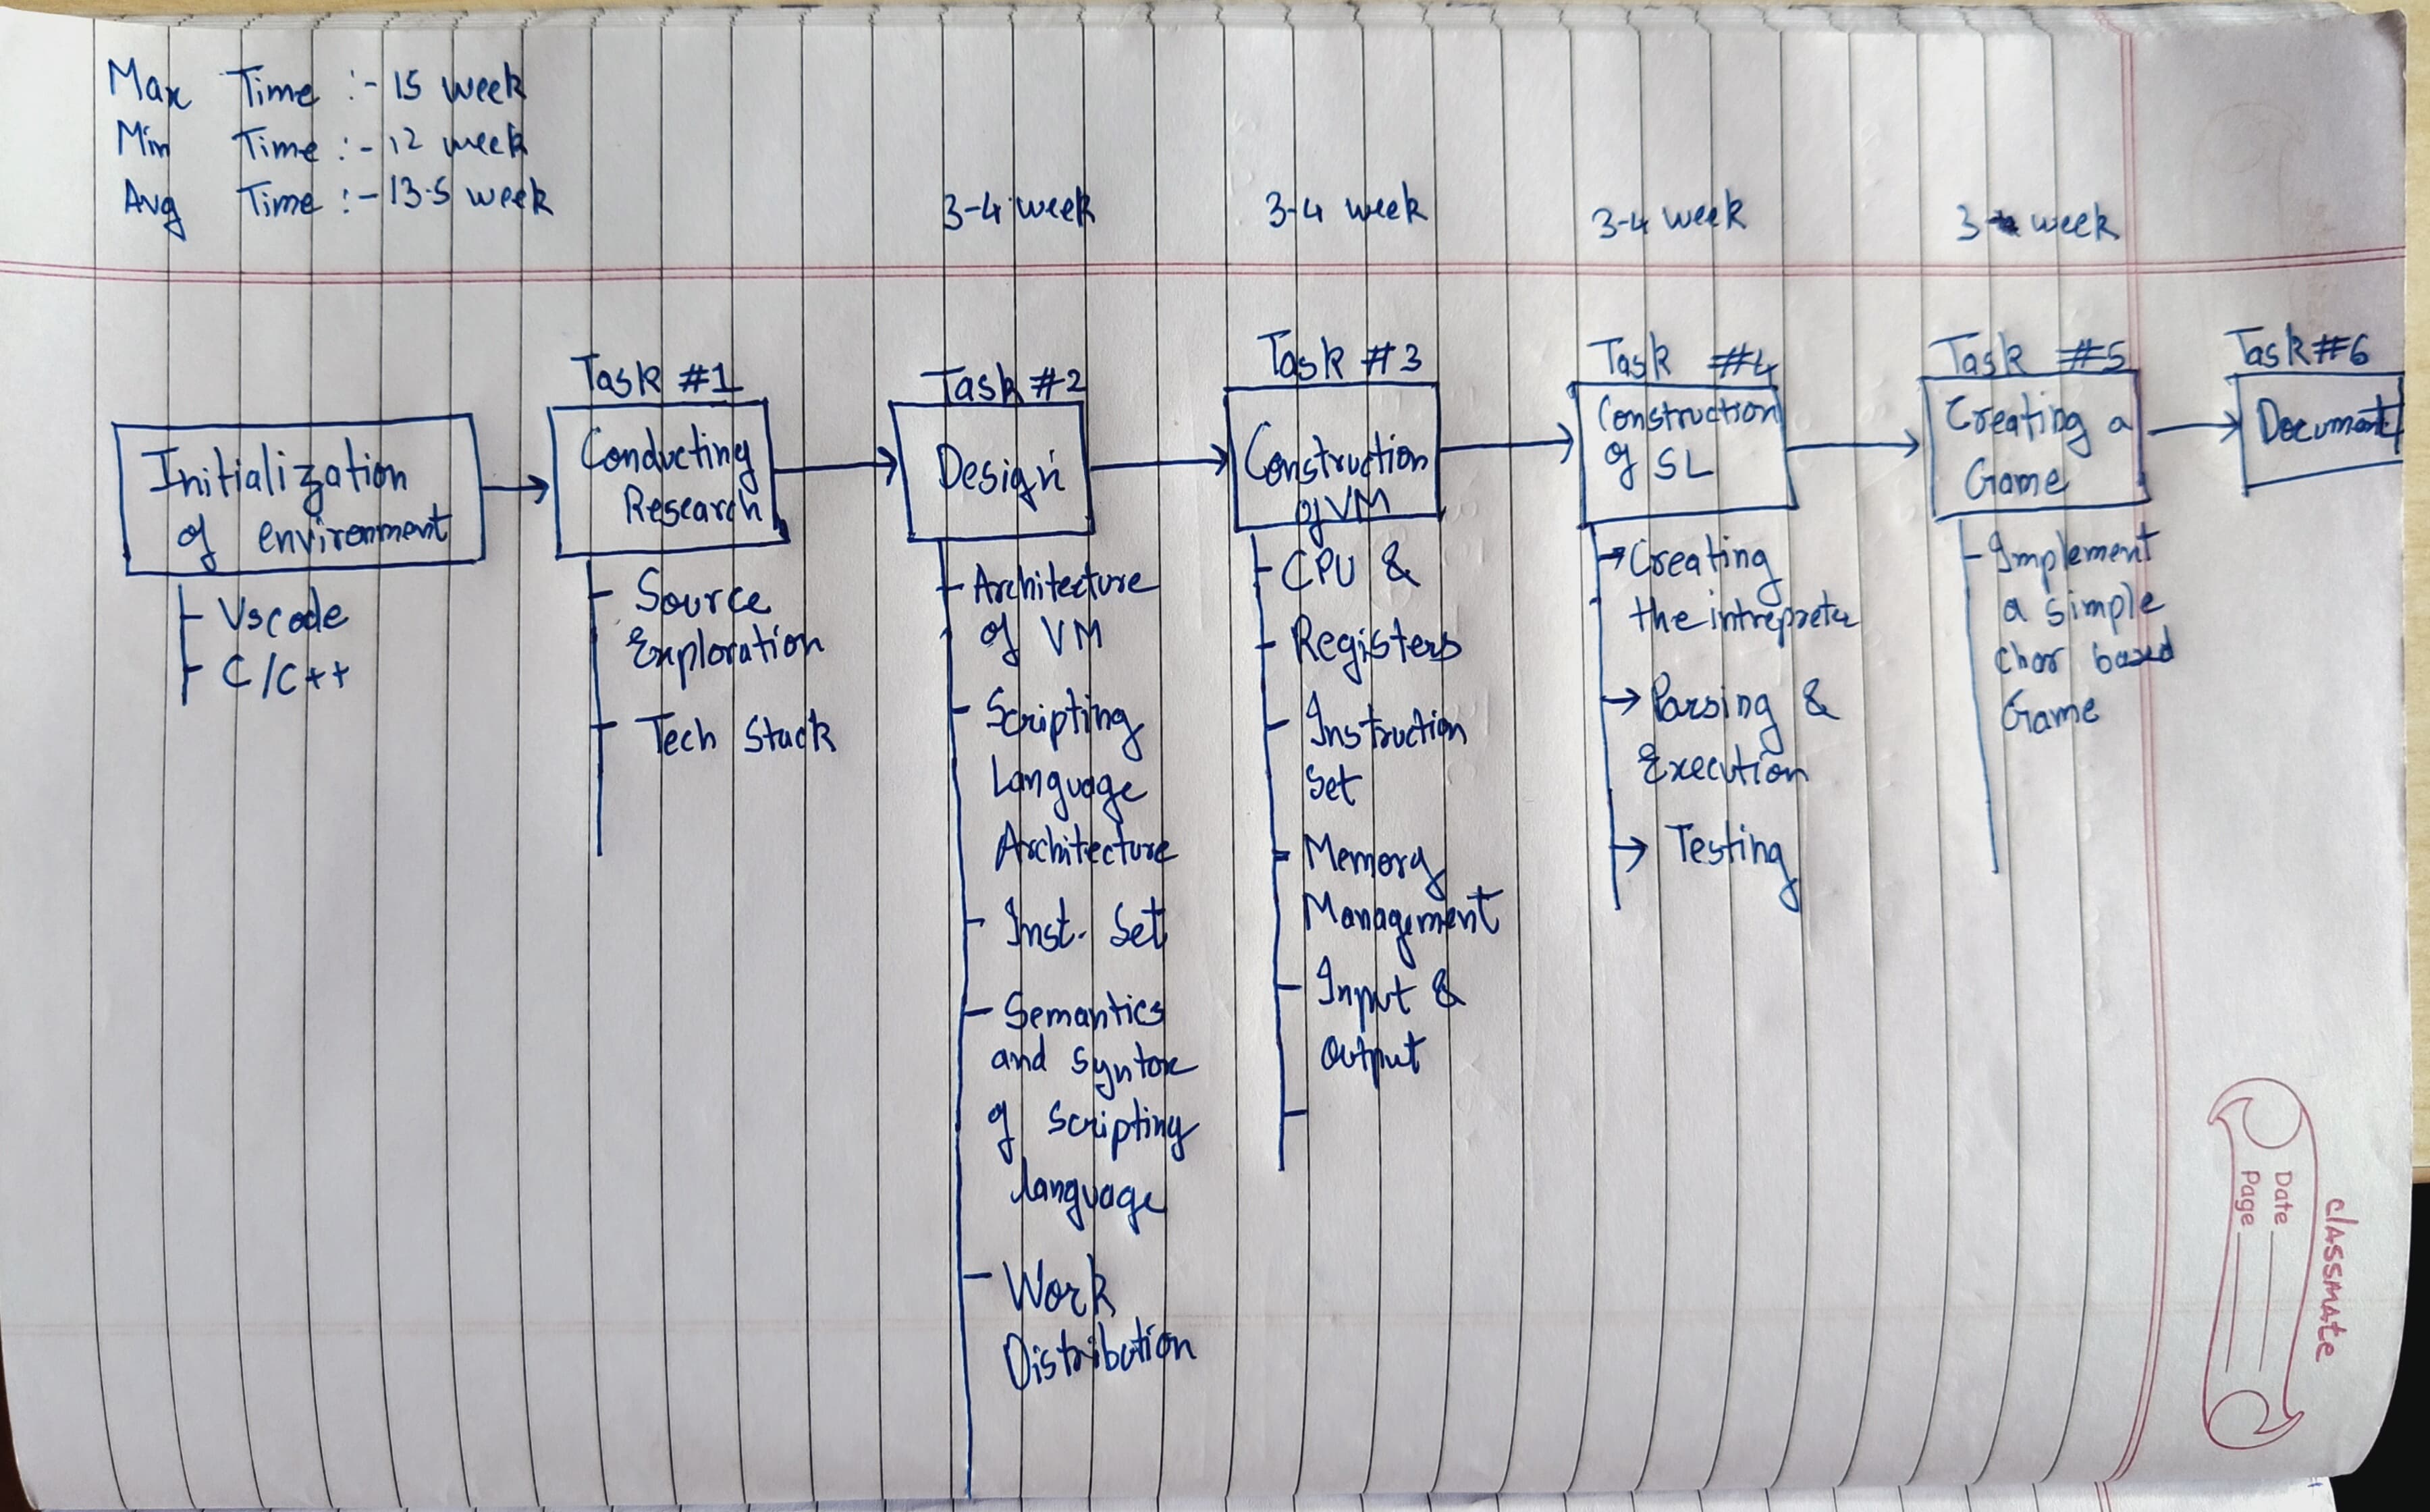 Max Time :- 15 week
Min Time :- 12 week
Avg Time :- 13.5 week
3-4 week
3-4 week
3-4 week
3 week
Initialization
of environment
Vscode
C/C++
Task #1
Conducting
Research
Source
Exploration
Tech Stack
Task #2
Design
Architecture
of VM
Scripting
Language
Architecture
Inst. Set
Semantics
and Syntax
of Scripting
language
Work
Distribution
Task #3
Construction
of VM
CPU &
Registers
Instruction
Set
Memory
Management
Input &
Output
Task #4
Construction
of SL
Creating
the intrepreter
Parsing &
Execution
Testing
Task #5
Creating a
Game
Implement
a simple
char based
Game
Task #6
Document
classmate
Date
Page